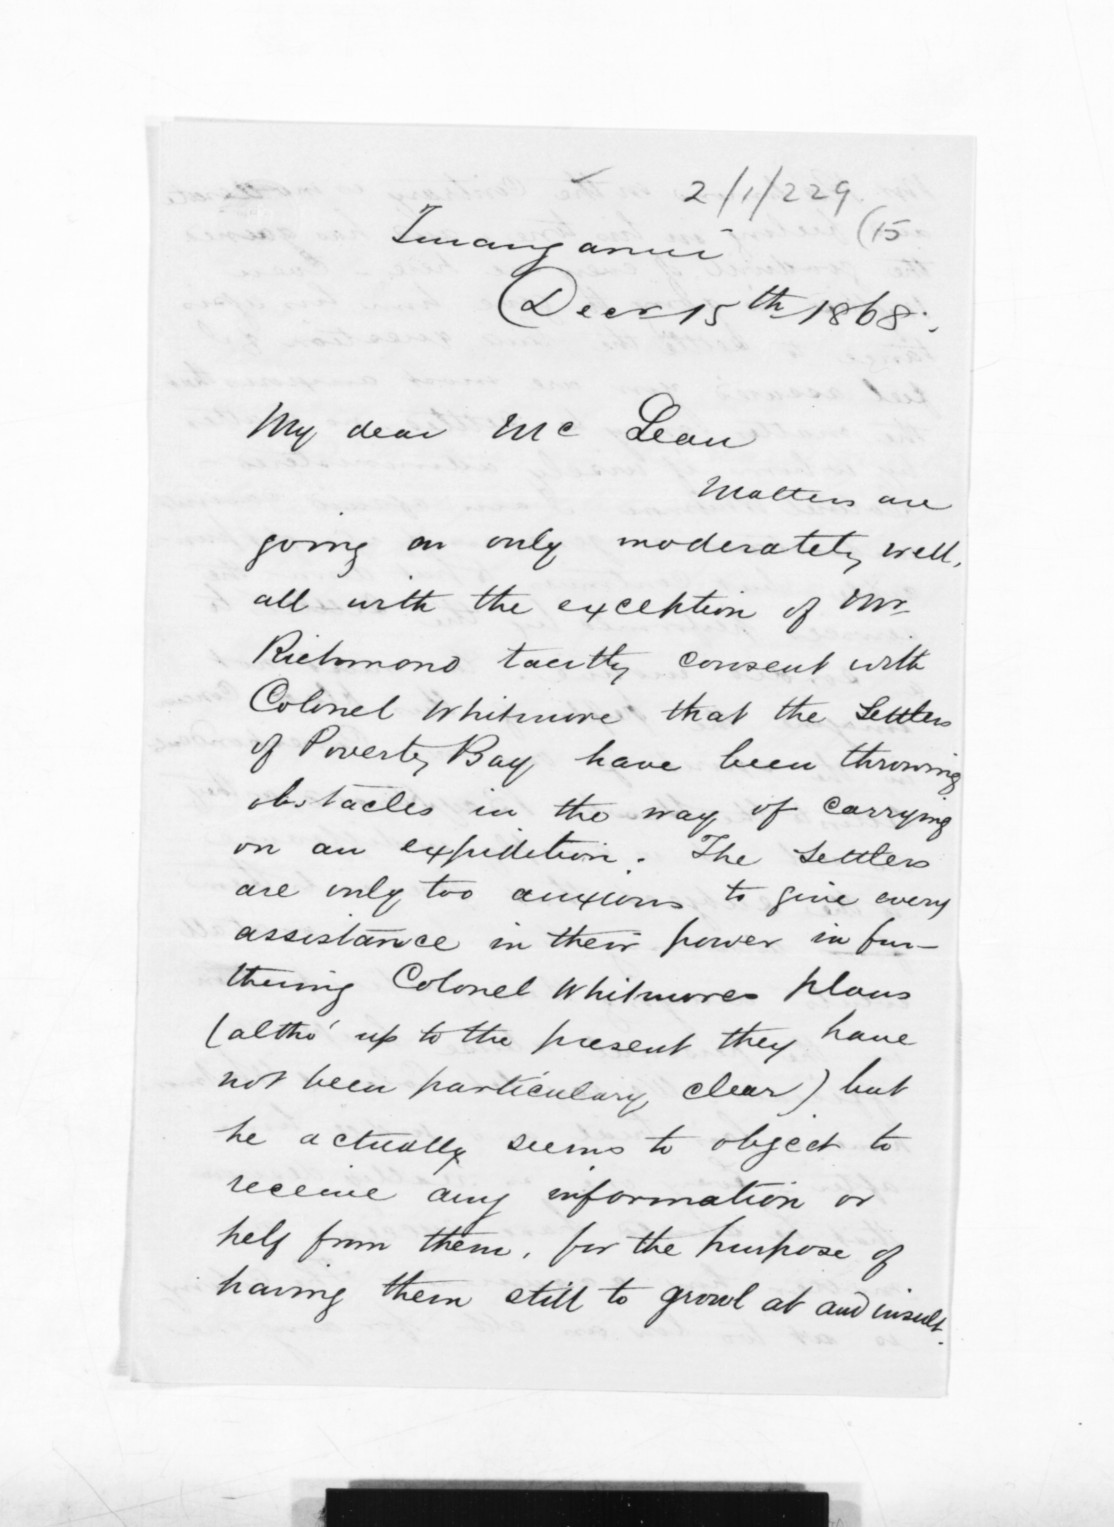 2/1/229
(15
Turanganui
Decr 15th 1868.
My dear Mc Lean
Matters are
going on only moderately well,
all with the exception of Mr
Richmond tacitly consent with
Colonel Whitmore that the Settlers
of Poverty Bay have been throwing
obstacles in the way of carrying
on an expidition. The Settlers
are only too anxious to give every
assistance in their power in fur-
thering Colonel Whitmores plans
(altho' up to the present they have
not been particulary clear) but
he actually seems to object to
receive any information or
help from them, for the purpose of
having them still to growl at and insult.